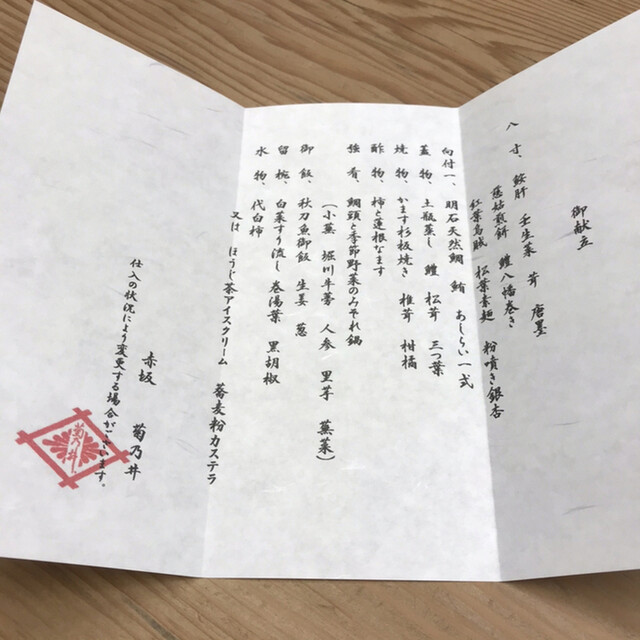 御献立
八寸、鮟肝 壬生菜 茸 唐墨
慈姑煎餅 鱧八幡巻き
紅葉烏賊 松葉素麺 粉噴き銀杏
向付一、明石天然鯛 鮪 あしらい一式
蓋物、土瓶蒸し 鱧 松茸 三つ葉
焼物、かます杉板焼き 椎茸 柑橘
酢物、柿と蓮根なます
強肴、鯛頭と季節野菜のみぞれ鍋
（小蕪 堀川牛蒡 人参 里芋 蕪菜）
御飯、秋刀魚御飯 生姜 葱
留椀、白菜すり流し 巻湯葉 黒胡椒
水物、代白柿
又は ほうじ茶アイスクリーム 蕎麦粉カステラ
赤坂 菊乃井
仕入の状況により変更する場合がございます。
菊乃井